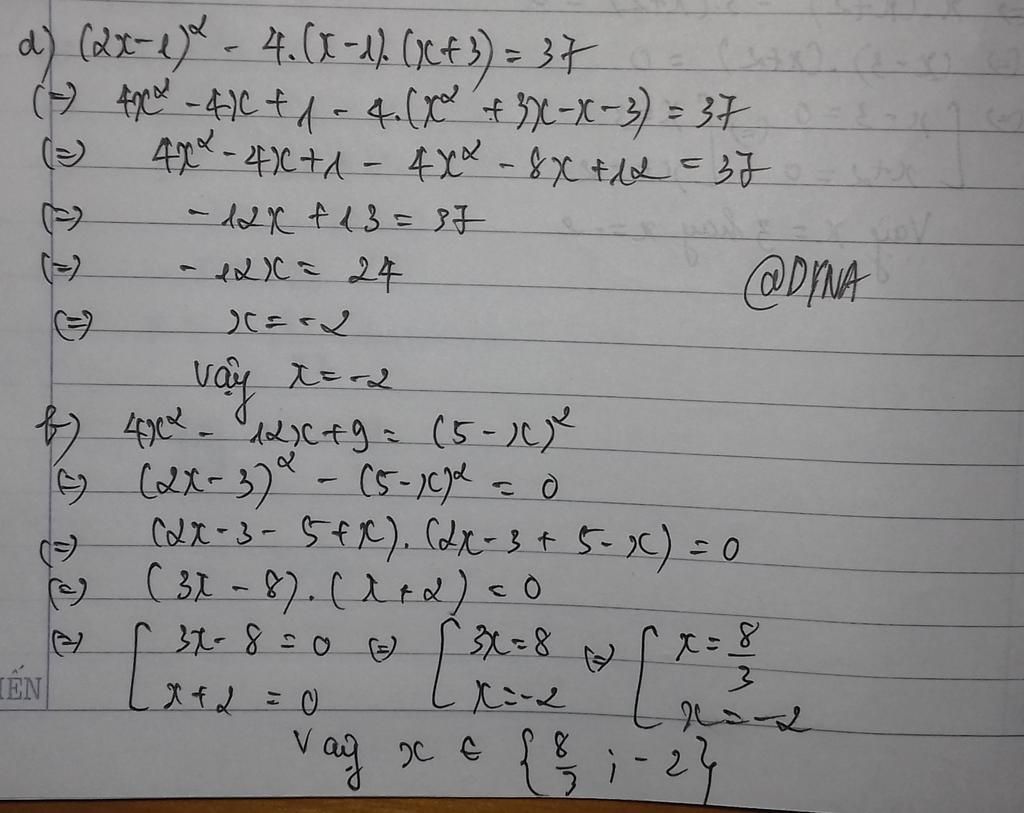 a) (2x-1)² - 4.(x-1).(x+3) = 37
(=) 4x² - 4x + 1 - 4.(x² + 3x - x - 3) = 37
(=) 4x² - 4x + 1 - 4x² - 8x + 12 = 37
(=) - 12x + 13 = 37
(=) - 12x = 24
@DYNA
(=) x = -2
Vậy x = -2
b) 4x² - 12x + 9 = (5-x)²
(=) (2x-3)² - (5-x)² = 0
(=) (2x-3-5+x).(2x-3+5-x) = 0
(=) (3x-8).(x+2) = 0
(=) [ 3x-8 = 0 (=) [ 3x = 8 (=) [ x = 8/3
x+2 = 0 x = -2 x = -2
IẾN
Vậy x ∈ {8/3 ; -2}